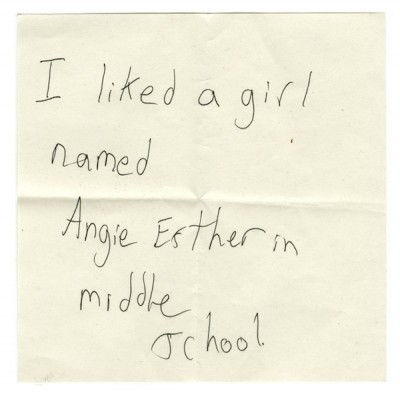 I liked a girl
named
Angie Esther in
middle
school.